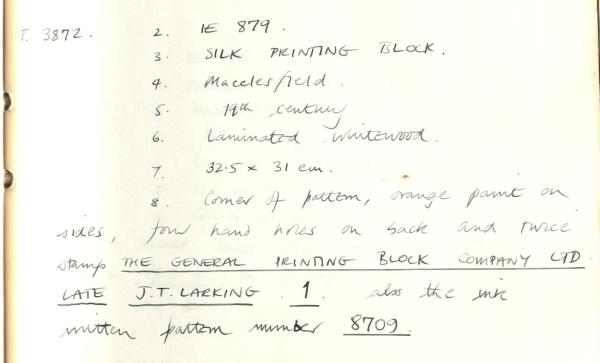 T. 3872. 2. IE 879.
3. SILK PRINTING BLOCK.
4. Macclesfield.
5. 19th century
6. Laminated whitewood.
7. 32.5 x 31 cm.
8. Corner of pattern, orange paint on
sides, four hand holes on back and twice
stamp THE GENERAL PRINTING BLOCK COMPANY LTD
LATE J.T. LARKING . 1 . also the ink
written pattern number 8709.